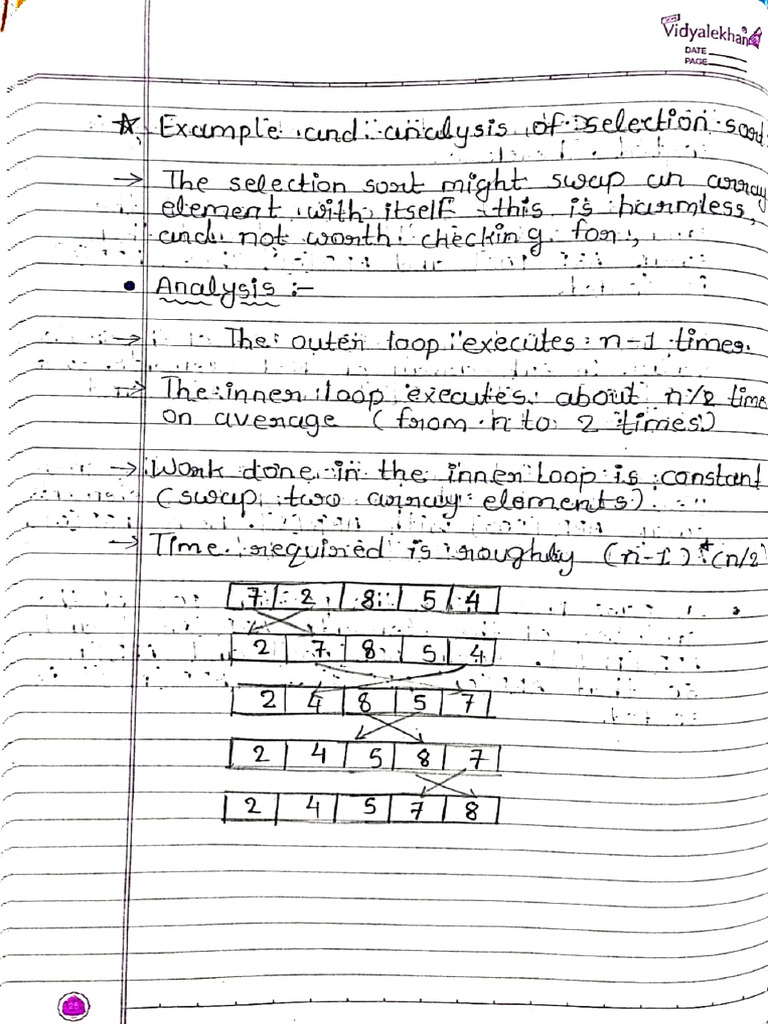 Vidyalekhan
DATE
PAGE
☆ Example and analysis of selection sort
→ The selection sort might swap an array
element with itself this is harmless,
and not worth checking for,
• Analysis :-
→ The outer loop executes n-1 times.
→ The inner loop executes about n/2 time
on average (from n to 2 times)
→ Work done in the inner loop is constant
(swap two array elements).
→ Time required is roughly (n-1)*(n/2)
7 2 8 5 4
2 7 8 5 4
2 4 8 5 7
2 4 5 8 7
2 4 5 7 8
25